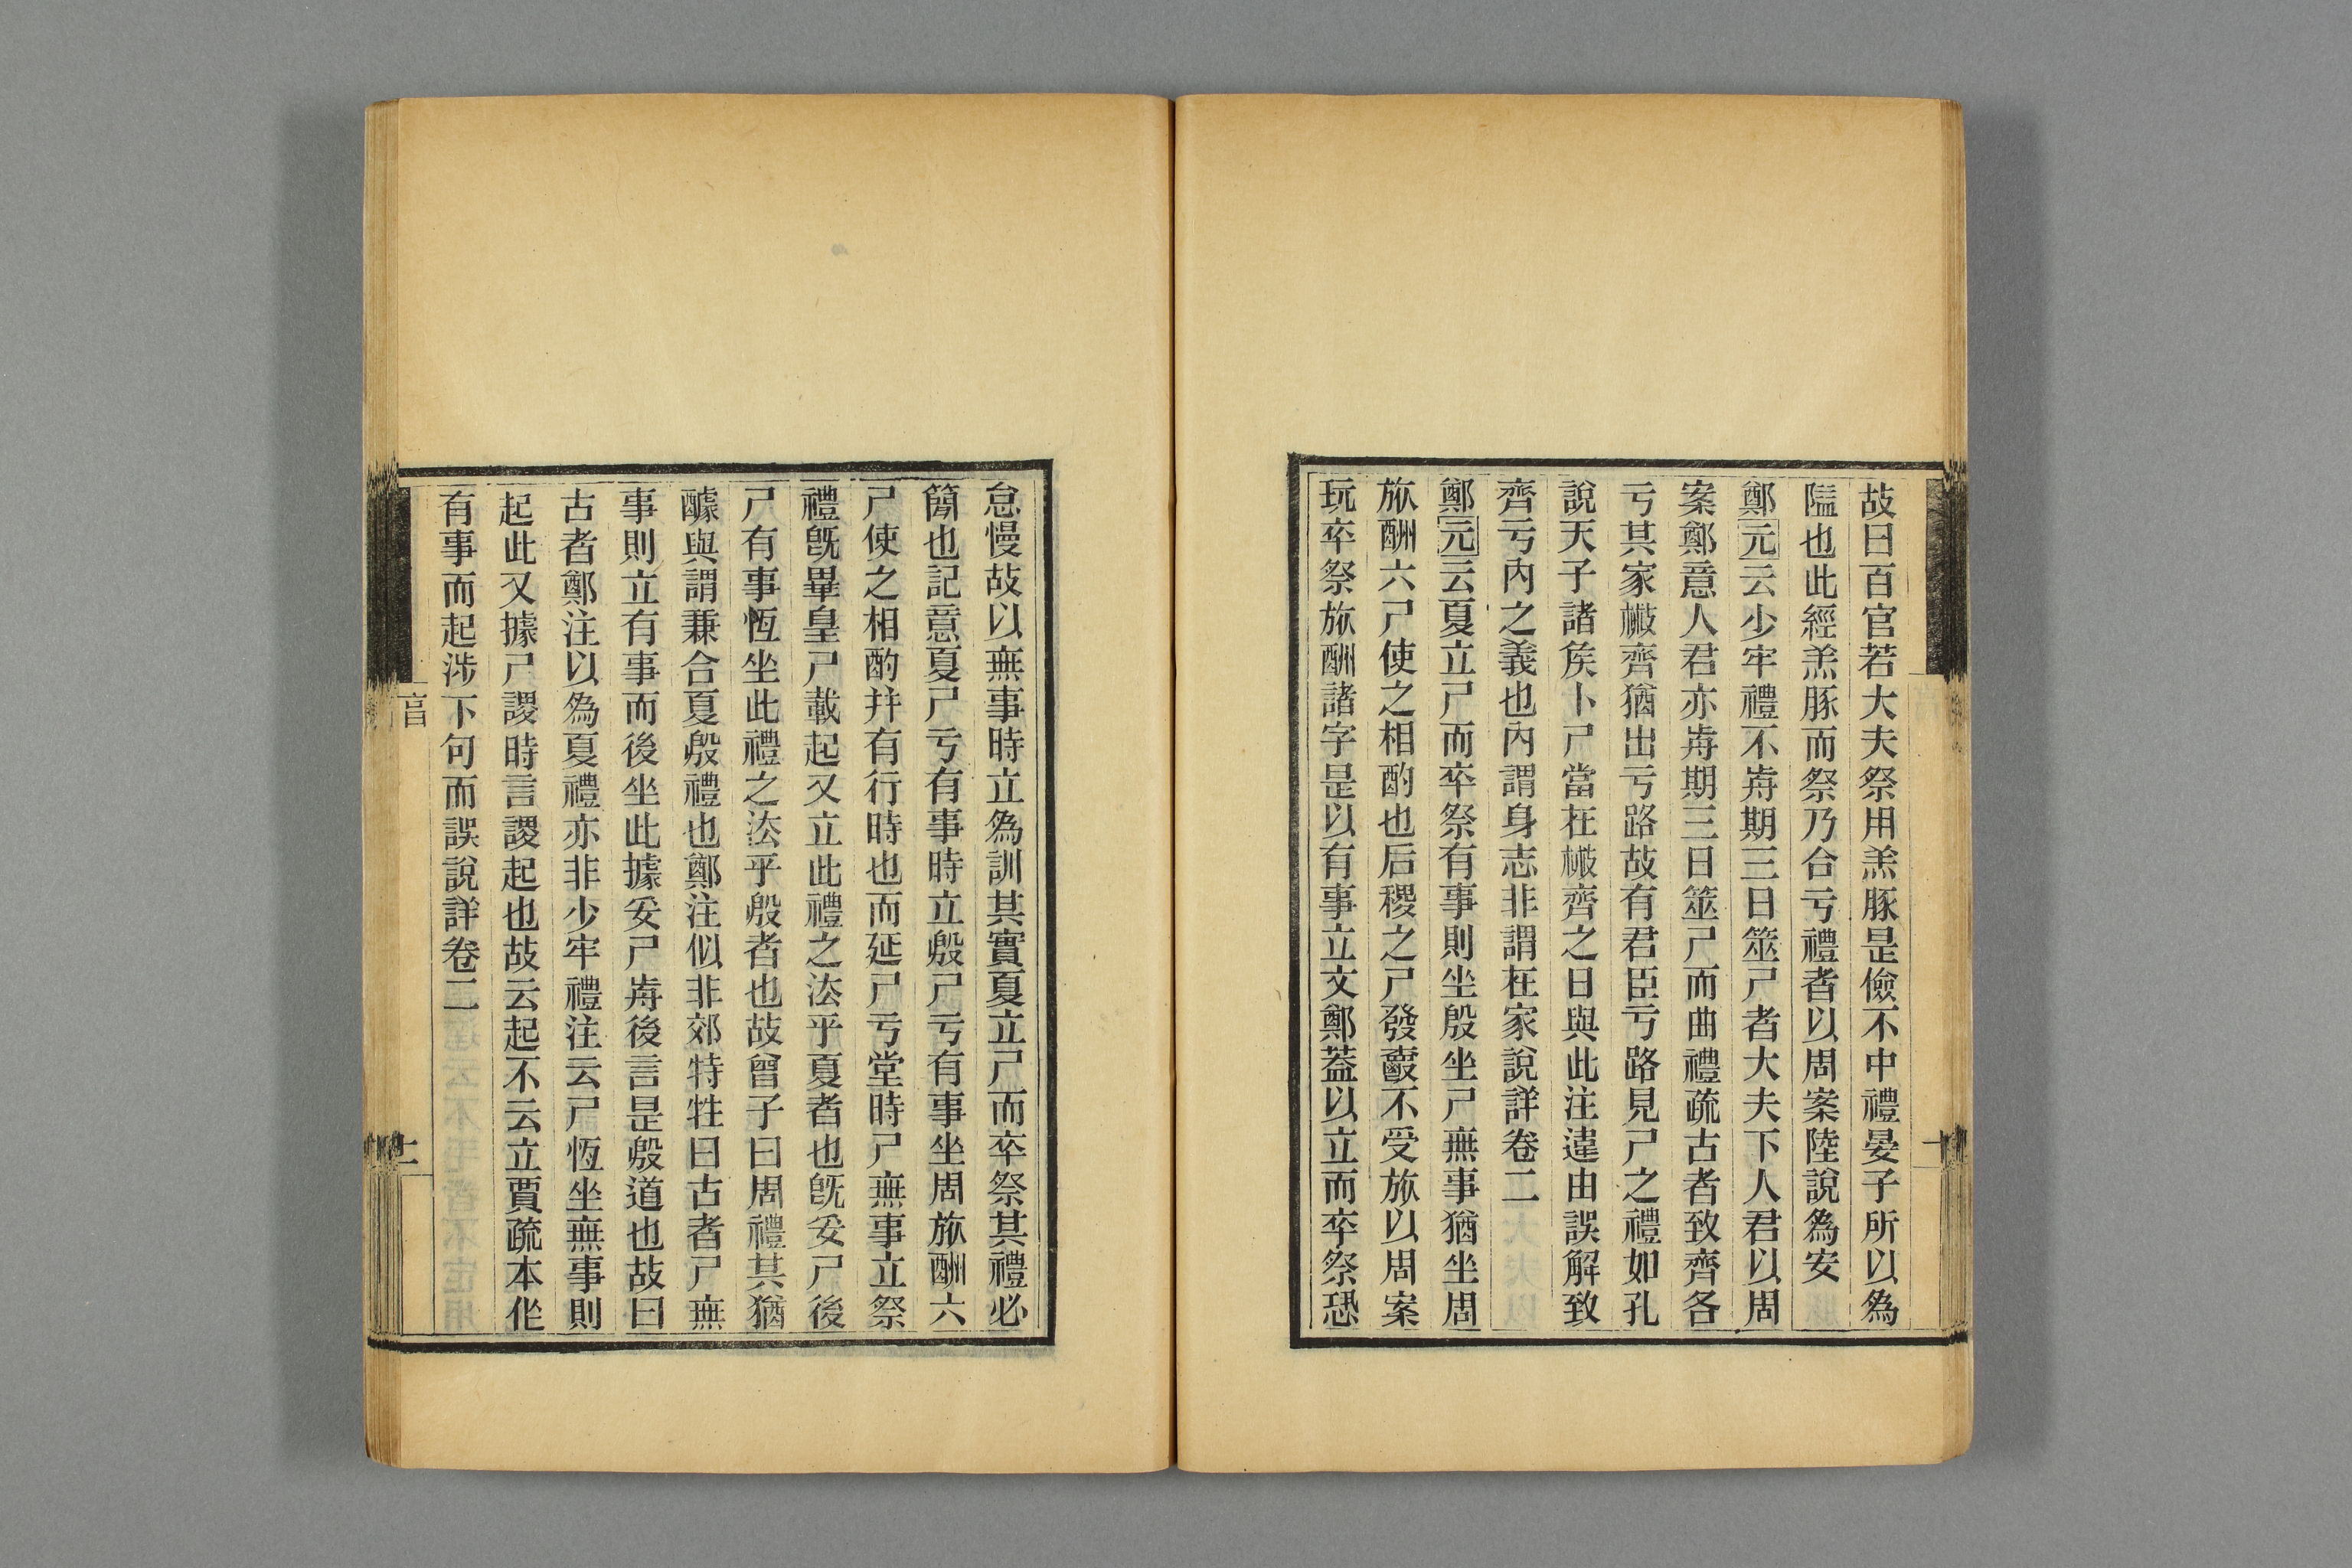 故曰百官若大夫祭用羔豚是儉不中禮晏子所以爲
隘也此經羔豚而祭乃合亏禮者以周案陸說爲安
鄭元云少牢禮不歬期三日筮尸者大夫下人君以周
案鄭意人君亦歬期三日筮尸而曲禮疏古者致齊各
亏其家檆齊猶出亏路故有君臣亏路見尸之禮如孔
說天子諸矦卜尸當在檆齊之日與此注違由誤解致
齊亏內之義也內謂身志非謂在家說詳卷二
鄭元云夏立尸而卒祭有事則坐殷坐尸無事猶坐周
旅酬六尸使之相酌也后稷之尸發爵不受旅以周案
玩卒祭旅酬諸字是以有事立文鄭蓋以立而卒祭恐
怠慢故以無事時立爲訓其實夏立尸而卒祭其禮必
簡也記意夏尸亏有事時立殷尸亏有事坐周旅酬六
尸使之相酌并有行時也而延尸亏堂時尸無事立祭
禮旣畢皇尸載起又立此禮之法乎夏者也旣妥尸後
尸有事恆坐此禮之法乎殷者也故曾子曰周禮其猶
醵與謂兼合夏殷禮也鄭注似非郊特牲曰古者尸無
事則立有事而後坐此據妥尸歬後言是殷道也故曰
古者鄭注以爲夏禮亦非少牢禮注云尸恆坐無事則
起此又據尸謖時言謖起也故云起不云立賈疏本作
有事而起涉下句而誤說詳卷二